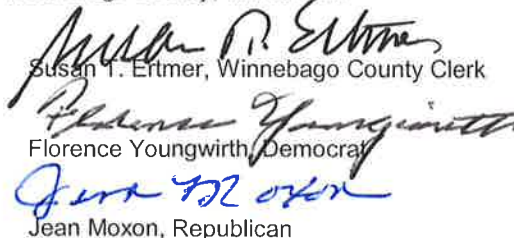 Susan T. Ertmer
Susan T. Ertmer, Winnebago County Clerk
Florence Youngwirth
Florence Youngwirth, Democrat
Jean Moxon
Jean Moxon, Republican